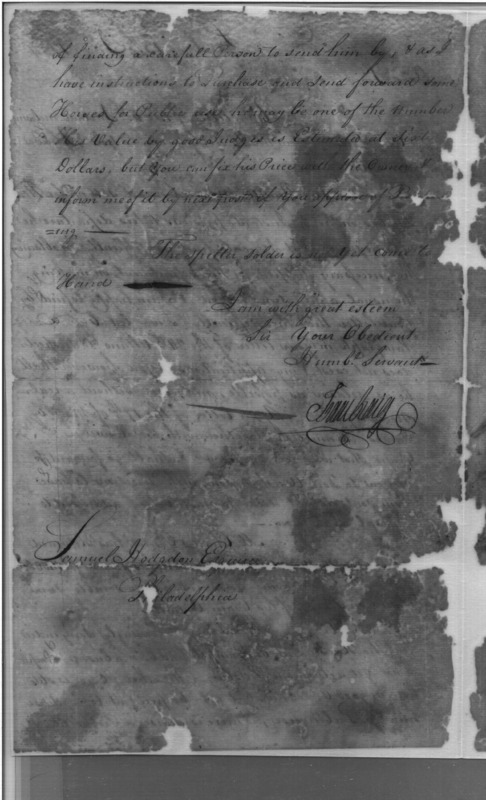 of finding a carefull Person to send him by, & as I
have instructions to Purchase and Send forward some
Horses for Public use, he may be one of the Number
His Value by good Judges is Estimated at
Dollars, but You can fix his Price with the Owner &
inform me of it by next post if You approve of
=ing
The spelter solder is not yet come to
Hand
I am with great esteem
Sir Your Obedient
Humbl. Servant
Isaac Craig
Samuel Hodgdon Esquire
Philadelphia